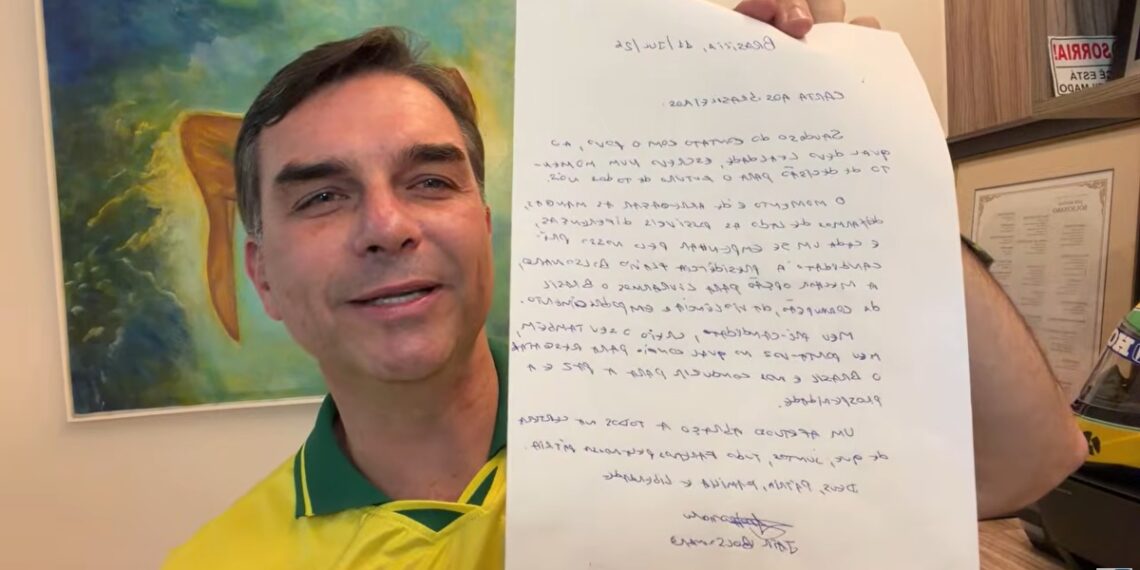 Brasília, 11/Jul/26
CARTA AOS BRASILEIROS.
Saudoso do contato com o povo, ao
qual devo lealdade, escrevo num momen-
to de decisão para o futuro de todos nós.
O momento é de arregaçar as mangas,
deixarmos de lado as possíveis diferenças,
e cada um se empenhar pelo nosso pré-
candidato à Presidência Flávio Bolsonaro,
a melhor opção para livrarmos o Brasil
da corrupção, da violência e empobrecimento.
Meu pré-candidato, creio o seu também,
meu porta-voz no qual confio para resgatar
o Brasil e nos conduzir para a paz e a
prosperidade.
Um afetuoso abraço a todos na certeza
de que, juntos, tudo faremos pela nossa pátria.
Deus, Pátria, Família e Liberdade
Jair Bolsonaro
SORRIA!
CÊ ESTÁ
LMADO
BOLSONARO